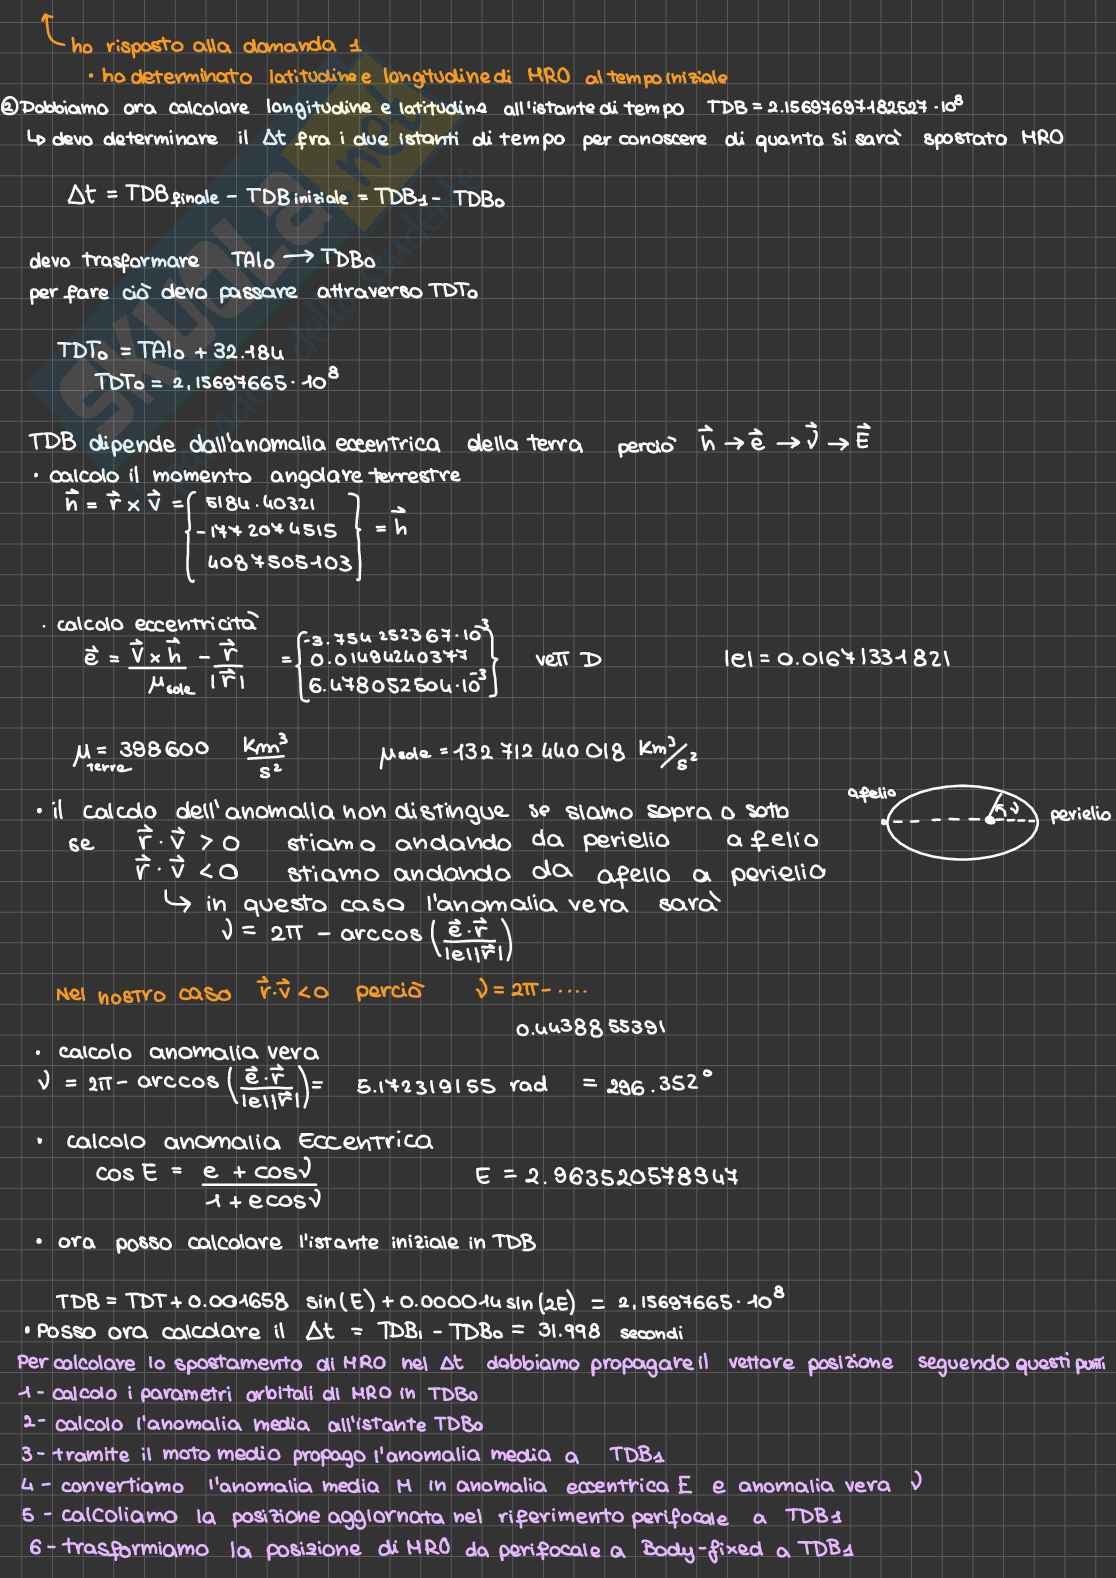 ho risposto alla domanda 1
• ho determinato latitudine e longitudine di MRO al tempo iniziale
② Dobbiamo ora calcolare longitudine e latitudine all'istante di tempo TDB = 2.15697697182527 · 10⁸
↳ devo determinare il Δt fra i due istanti di tempo per conoscere di quanto si sarà spostato MRO
Δt = TDB finale - TDB iniziale = TDB₁ - TDB₀
devo trasformare TAI₀ → TDB₀
per fare ciò devo passare attraverso TDT₀
TDT₀ = TAI₀ + 32.184
TDT₀ = 2,15697665 · 10⁸
TDB dipende dall'anomalia eccentrica della terra perciò h⃗ → e⃗ → ν⃗ → E⃗
• calcolo il momento angolare terrestre
h⃗ = r⃗ × v⃗ = { 5184.40321
-1772074515
4087505103 } = h⃗
• calcolo eccentricità
e⃗ = v⃗ × h⃗ / μ sole - r⃗ / |r⃗| = { -3.754252367 · 10⁻³
0.01494240377
6.478052504 · 10⁻³ } vett D |e| = 0.01671331821
μ terra = 398600 Km³/s² μ sole = 132 712 440 018 Km³/s²
• il calcolo dell'anomalia non distingue se siamo sopra o sotto
afelio ν perielio
se r⃗ · v⃗ > 0 stiamo andando da perielio a felio
r⃗ · v⃗ < 0 stiamo andando da afelio a perielio
↳ in questo caso l'anomalia vera sarà
ν = 2π - arccos (e⃗ · r⃗ / |e||r⃗|)
Nel nostro caso r⃗ · v⃗ < 0 perciò ν = 2π - ....
0.4438855391
• calcolo anomalia vera
ν = 2π - arccos (e⃗ · r⃗ / |e||r⃗|) = 5.172319155 rad = 296.352°
• calcolo anomalia Eccentrica
cos E = e + cosν / 1 + e cosν E = 2.963520578947
• ora posso calcolare l'istante iniziale in TDB
TDB = TDT + 0.001658 sin(E) + 0.000014 sin(2E) = 2,15697665 · 10⁸
• Posso ora calcolare il Δt = TDB₁ - TDB₀ = 31.998 secondi
Per calcolare lo spostamento di MRO nel Δt dobbiamo propagare il vettore posizione seguendo questi punti
1 - calcolo i parametri orbitali di MRO in TDB₀
2 - calcolo l'anomalia media all'istante TDB₀
3 - tramite il moto medio propago l'anomalia media a TDB₁
4 - convertiamo l'anomalia media M in anomalia eccentrica E e anomalia vera ν
5 - calcoliamo la posizione aggiornata nel riferimento perifocale a TDB₁
6 - trasformiamo la posizione di MRO da perifocale a Body-fixed a TDB₁